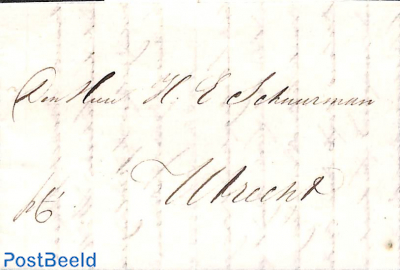 Den Heer H. E Schuurman
Utrecht
PostBeeld